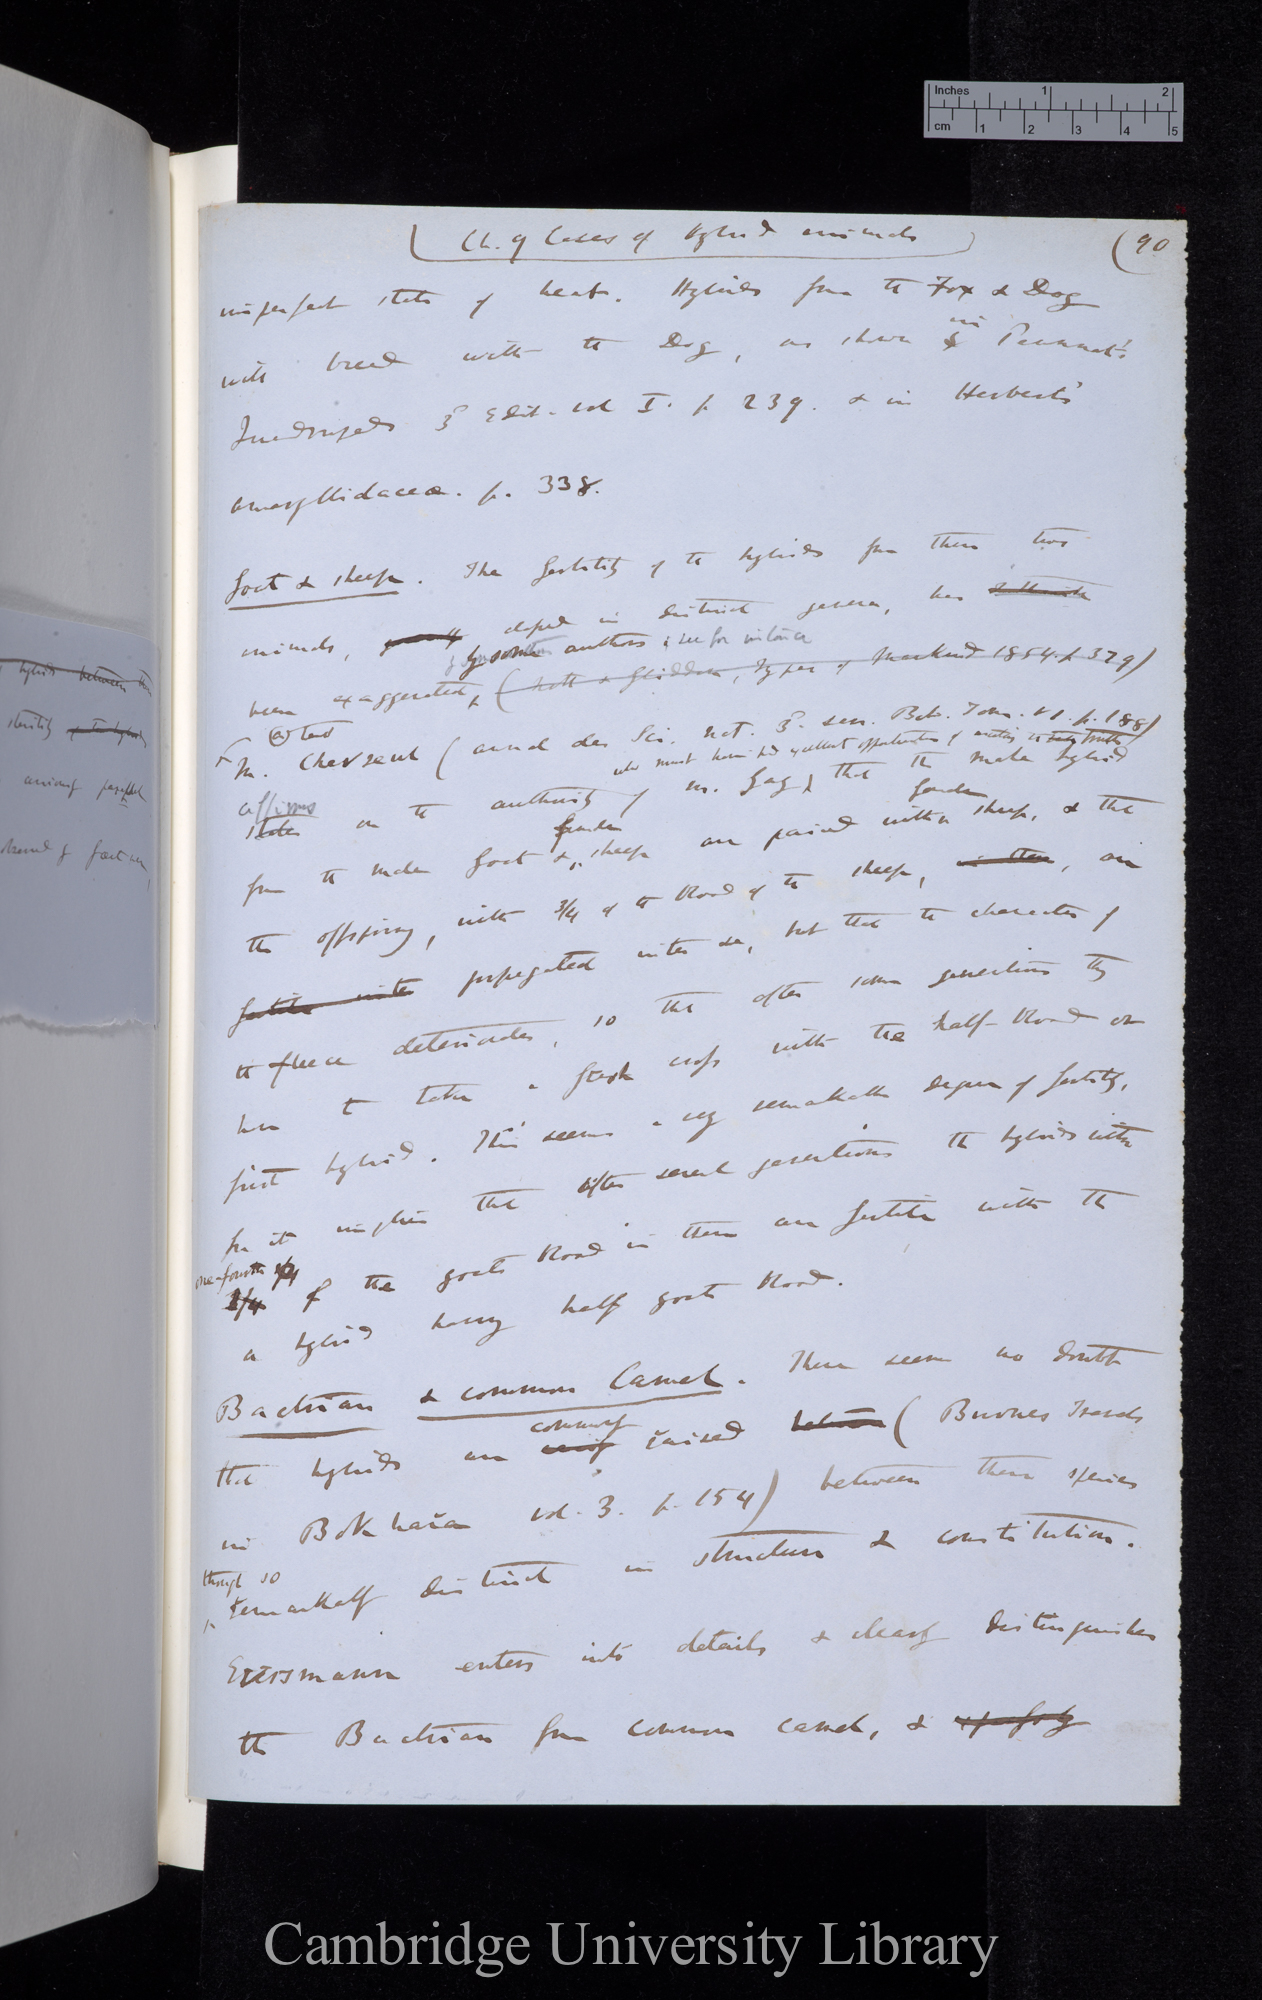 Inches 1 2
cm 1 2 3 4 5
(Ch. 9 Cases of Hybrid animals) (90
imperfect state of heat. Hybrids from the Fox & Dog
will breed with the Dog, as shown in Pennant's
Quadrupeds 3d Edit. vol I. p. 239. & in Herbert's
Amaryllidaceæ. p. 338.
Goat & sheep. The fertility of the hybrids from these two
animals, classed in distinct genera, has
by some authors; see for instance
been exaggerated, (Nott & Gliddon, Types of Mankind 1854. p 379)
M. Chevreul (Annal des Sci. nat. 3d. ser. Bot. Tom. VI. p. 188)
who must have had excellent opportunities of arriving at truth
affirms
states on the authority of M. Gay, that the male hybrid
female
from the male Goat & sheep are paired with a sheep, & that
female
the offspring, with 3/4 of the blood of the sheep, are
fertile inter propagated inter se, but that the character of
the fleece deteriorates, so that after some generations they
have to take a fresh cross with the half-blood or
first hybrid. This seems a very remarkable degree of fertility,
for it implies that after several generations the hybrids with
one-fourth 1/4
3/4 of the goats blood in them are fertile with the
a hybrid having half goats blood.
Bactrian & common Camel. There seems no doubt
commonly
that hybrids are raised between (Burnes Travels
in Bokhara vol. 3. p. 154) between these species
though so
remarkably distinct in structure & constitution.
Eversmann enters into details & clearly distinguishes
the Bactrian from common camel, &
hybrids between the
sterility
Cambridge University Library